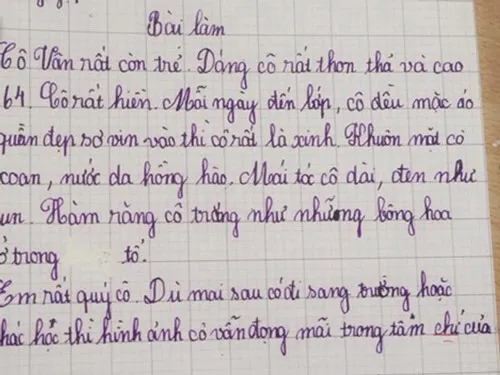 Bài làm
Cô Vân rất còn trẻ. Dáng cô rất thon thả và cao
64. Cô rất hiền. Mỗi ngày đến lớp, cô đều mặc áo
quần đẹp sơ vin vào thì cô rất là xinh. Khuôn mặt cô
xoan, nước da hồng hào. Mái tóc cô dài, đen như
un. Hàm răng cô trắng như những bông hoa
ở trong tổ.
Em rất quý cô. Dù mai sau cô đi sang trường hoặc
khác học thì hình ảnh cô vẫn đọng mãi trong tâm chí của